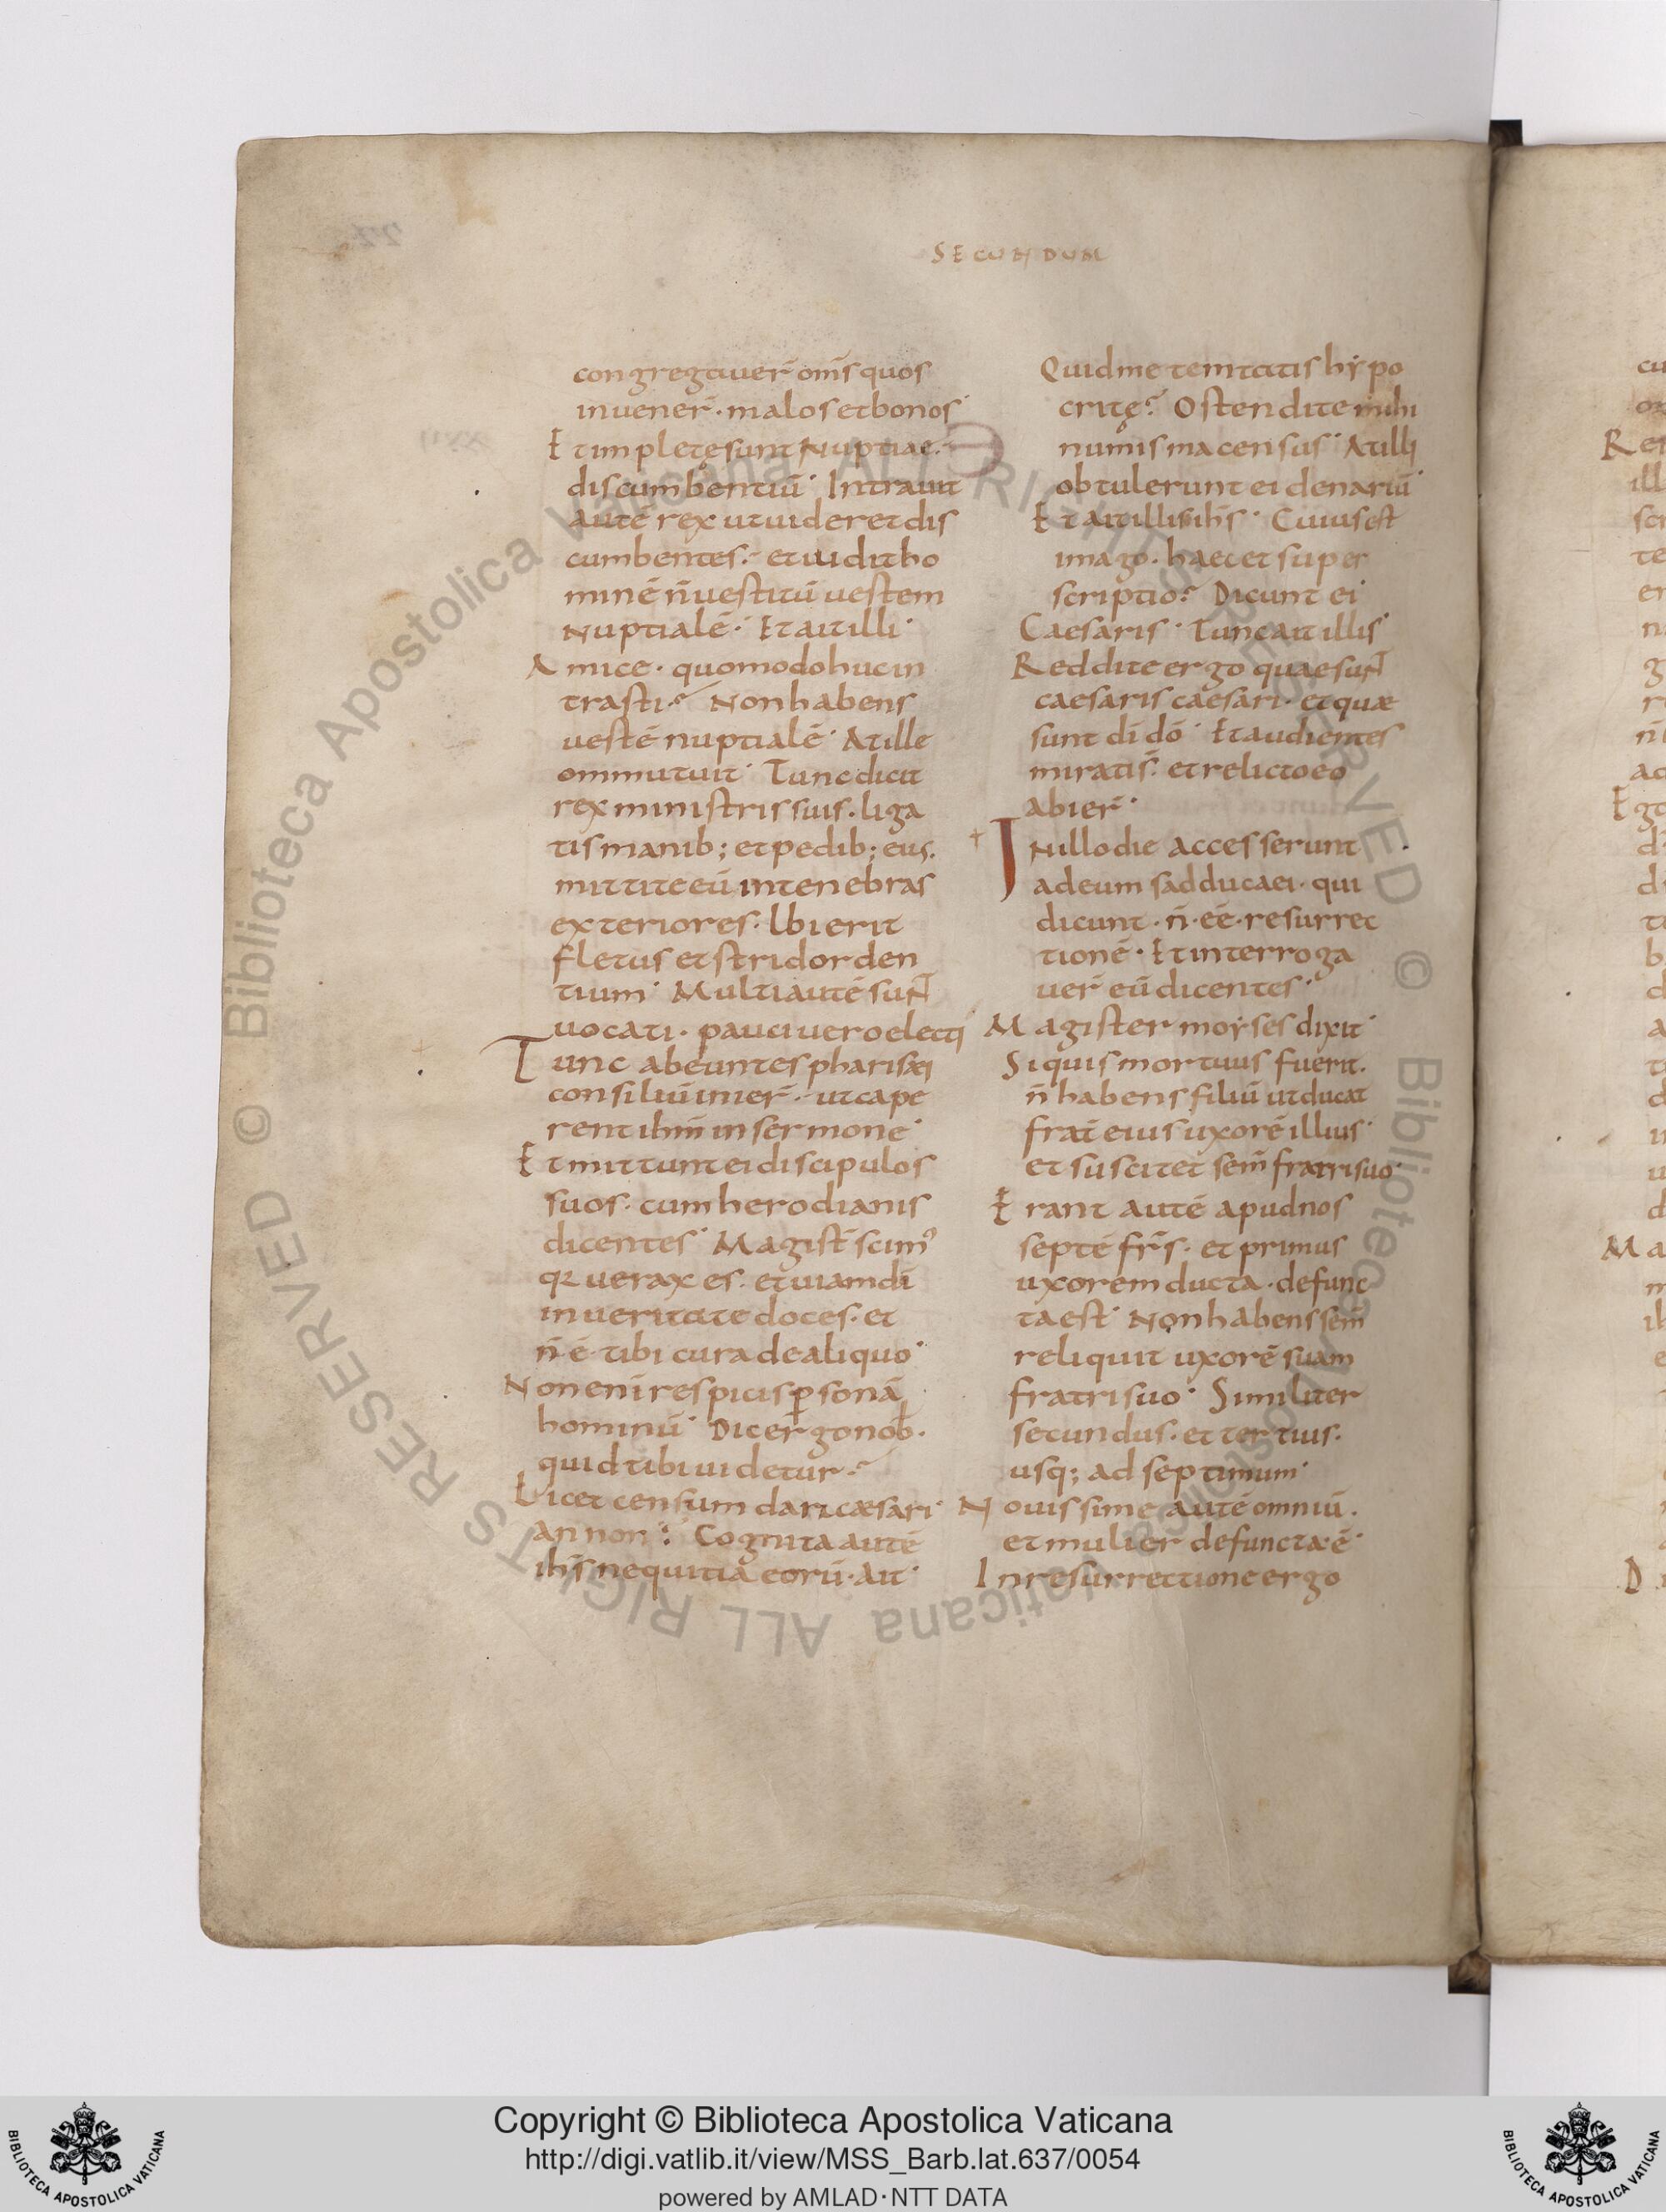 SECUNDUM
congregauer̄ om̄s quos
inuener̄ · malos et bonos ·
Et impletę sunt Nuptiae ·
discumbentiū · Intrauit
autē rex ut uideret dis
cumbentes · et uidit ho
minē n̄ uestitū uestem
Nuptialē · Et ait illi ·
Amice · quomodo huc in
trasti? Non habens
uestē nuptialē · At ille
ommutuit · Tunc dicit
rex ministris suis · liga
tis manib; et pedib; eius.
mittite eū in tenebras
exteriores · Ubi erit
fletus et stridor den
tium · Multi autē suNT
uocati · pauci uero electi
Tunc abeuntes pharisæi
consiliū inier̄ · ut cape
rent ihm̄ in sermone ·
Et mittunt ei discipulos
suos · cum herodianis
dicentes · Magist̄ scim᾿
qꝛ uerax es · et uiam dī
in ueritate doces · et
n̄ ē tibi cura de aliquo ·
Non enī respicis ꝑsonā
hominū · Dic ergo nob̄ ·
quid tibi uidetur?
Licet censum dari cæsari ·
An non? Cognita autē
ihs̄ nequitia eorū · Ait ·
Quid me temtatis hẏpo
critę? Ostendite mihi
numisma census · At illi
obtulerunt ei denariū ·
Et ait illis ihs̄ · Cuius est
imago · haec et super
scriptio? Dicunt ei
Caesaris · Tunc ait illis ·
Reddite ergo quae suNT
caesaris caesari · et quæ
sunt dī dō · Et audientes
mirati s̄ · et relicto eo
abier̄ ·
IN illo die accesserunt
ad eum sadducaei · qui
dicunt · n̄ · eē · resurrec
tionē · Et interroga
uer̄ eū dicentes ·
Magister moẏses dixit ·
Si quis mortuus fuerit.
n̄ habens filiū ut ducat
frat̄ eius uxorē illius ·
et suscitet sem̄ fratri suo ·
Erant autē apud nos
septē fr̄s · et primus
uxorem ducta · defunc
ta est · Non habens sem̄
reliquit uxorē suam
fratri suo · Similiter
secundus · et tertius ·
usq; ad septimum ·
Nouissime autē omniū ·
et mulier defuncta · ē ·
In resurrectione ergo
Copyright © Biblioteca Apostolica Vaticana
http://digi.vatlib.it/view/MSS_Barb.lat.637/0054
powered by AMLAD·NTT DATA